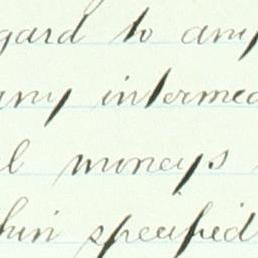 gard to any
any intermed
l moneys
hin specified